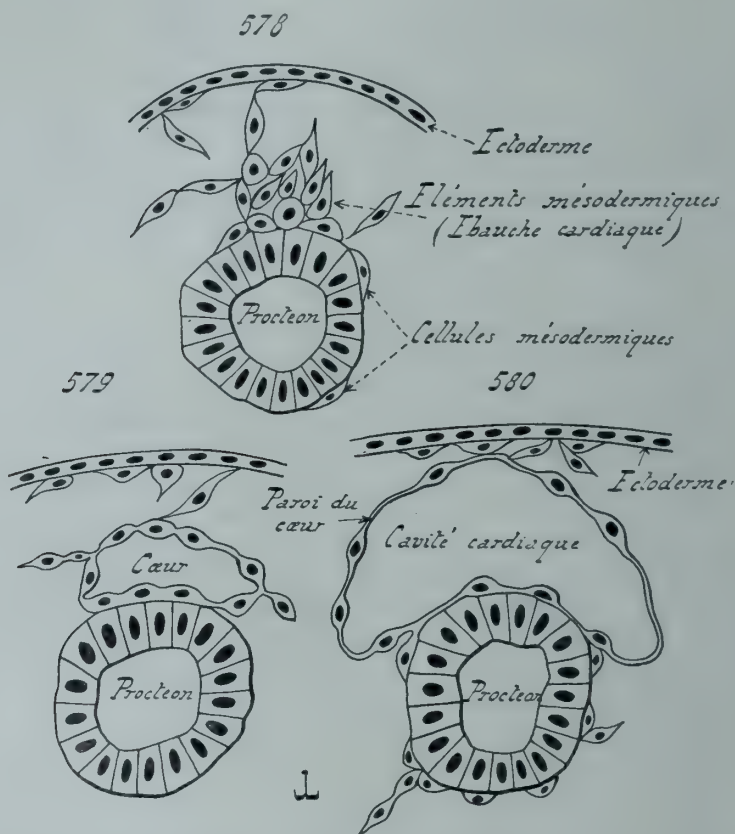 578
Ectoderme
Eléments mésodermiques
(Ebauche cardiaque)
Procteon
Cellules mésodermiques
579
580
Ectoderme
Paroi du
cœur
Cavité cardiaque
Cœur
Procteon
Procteon